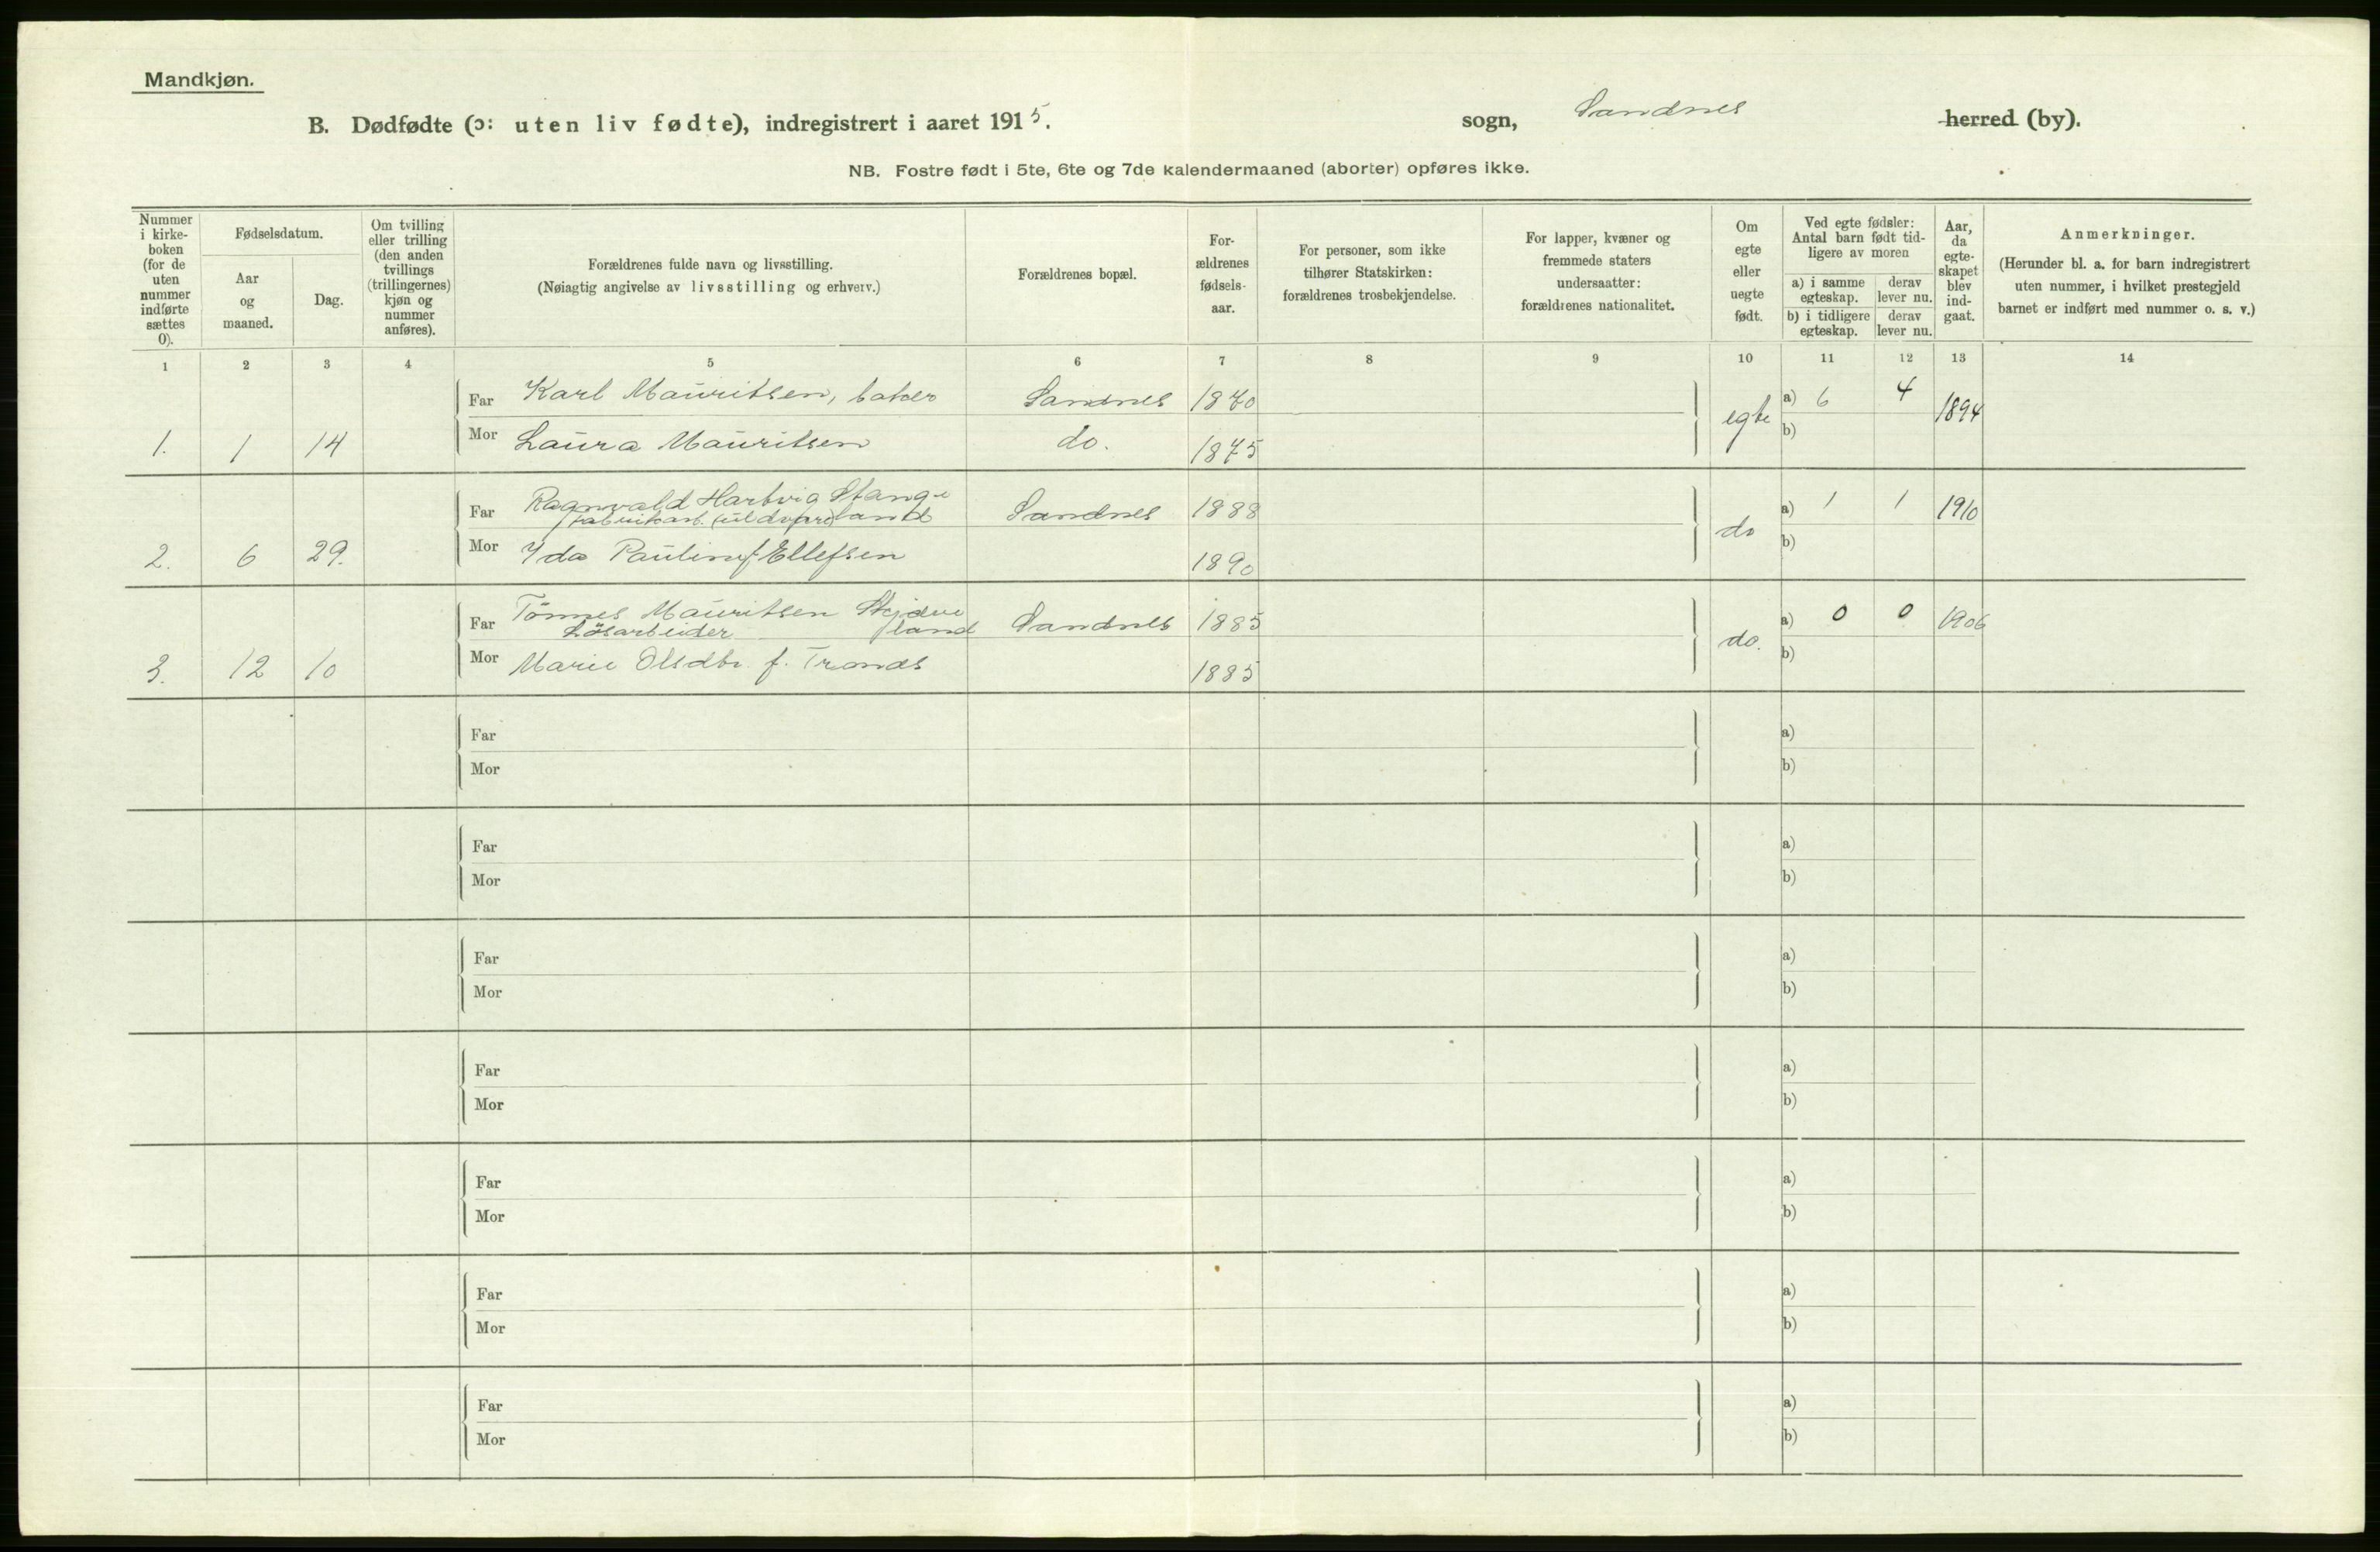 Mandkjøn.
B. Dødfødte (ɔ: uten liv fødte), indregistrert i aaret 1915. sogn, Sandnes herred (by).
NB. Fostre født i 5te, 6te og 7de kalendermaaned (aborter) opføres ikke.
Nummer i kirkeboken (for de uten nummer indførte sættes 0).
Fødselsdatum.
Aar og maaned.
Dag.
Om tvilling eller trilling (den anden tvillings (trillingernes) kjøn og nummer anføres).
Forældrenes fulde navn og livsstilling.
(Nøiagtig angivelse av livsstilling og erhverv.)
Forældrenes bopæl.
Forældrenes fødselsaar.
For personer, som ikke tilhører Statskirken: forældrenes trosbekjendelse.
For lapper, kvæner og fremmede staters undersaatter: forældrenes nationalitet.
Om egte eller uegte født.
Ved egte fødsler: Antal barn født tidligere av moren
a) i samme egteskap. derav lever nu.
b) i tidligere egteskap. derav lever nu.
Aar, da egteskapet blev indgaat.
Anmerkninger.
(Herunder bl. a. for barn indregistrert uten nummer, i hvilket prestegjeld barnet er indført med nummer o. s. v.)
1 2 3 4 5 6 7 8 9 10 11 12 13 14
Far Karl Mauritsen, baker Sandnes 1870 egte a) 6 4 1894
1. 1 14 Mor Laura Mauritsen do. 1875 b)
Far Ragnvald Hartvig Stangeland Sandnes 1888 do a) 1 1 1910
fabrikarb.
2. 6 29. Mor Ida Pauline f. Ellefsen 1890 b)
Far Tönnes Mauritsen Sandnes 1885 do. a) 0 0 1906
Lösarbeider land
3. 12 10 Mor Marie Olsdtr. f. Tronds 1885 b)
Far a)
Mor b)
Far a)
Mor b)
Far a)
Mor b)
Far a)
Mor b)
Far a)
Mor b)
Far a)
Mor b)
Far a)
Mor b)